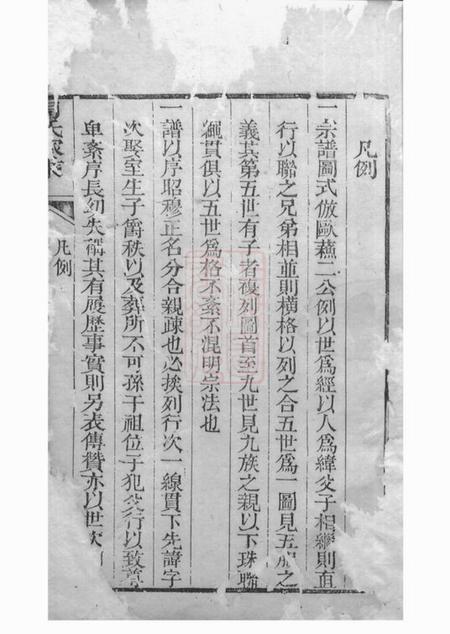 凡例
一宗譜圖式倣歐蘇二公例以世爲經以人爲緯父子相繼則直
行以聯之兄弟相並則橫格以列之合五世爲一圖見五服之
義其第五世有子者複列圖首至九世見九族之親以下珠聯
繩貫俱以五世爲格不紊不混明宗法也
一譜以序昭穆正名分合親疎也必挨列行次一線貫下先諱字
次娶室生子爵秩以及葬所不可孫干祖位子犯父行以致尊
卑紊序長幼失稱其有履歷事實則另表傳贊亦以世次
氏家乘
凡例